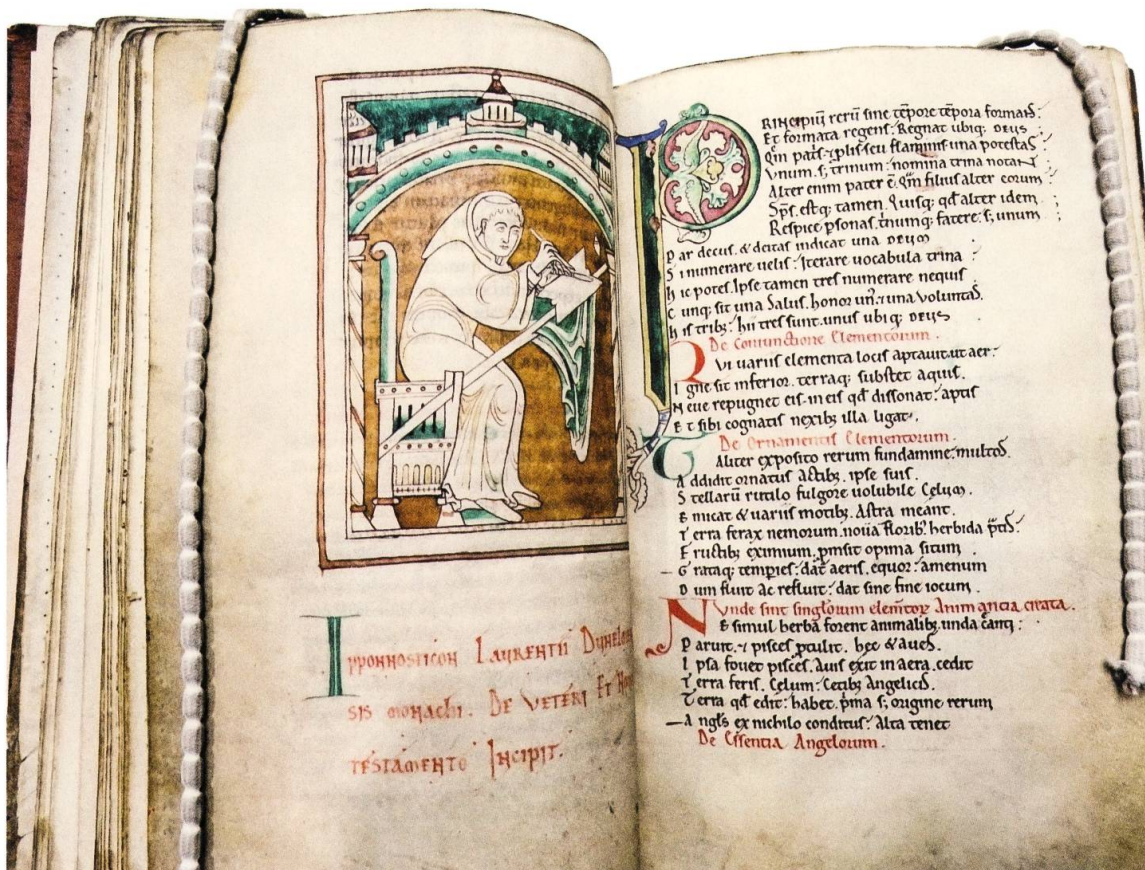 Ipponnosticon Laurentii Dunelm
sis monachi. De veteri Et No
testamento Incipit.
PRINCIPIŪ rerū sine tēpore tēpora formanS:
Et formata regens: Regnat ubiq; DEUS
Qm̄ patˢ ⁊ plis seu flaminis una potestaS
Vnum. s; trinum: nomina trina notanT
Alter enim pater ē. Qm̄ filius alter eorum
Sp̄s. est q; tamen. Quisq; qd̄ alter idem
Respice psonas. thnumq; fatere: s; unum
Par decus. & deitas indicat una DEUM
Si numerare uelis: Iterare uocabula trina
hic potes. Ipse tamen tres numerare nequis
Cunq; sit una Salus. honor un᷒. ⁊ una VoluntaS.
his trib;: hii tres sunt. unus ubiq; DEUS
De Coniunctione Elementorum.
QVi uariis elementa locis aptauit. ut aer:
Igne sit inferior. terraq; substet aquis.
Neue repugnet eis in eis qd̄ dissonat: aptis
Et sibi cognatis nexib; illa ligat.
De Ornamentis Elementorum.
Taliter exposito rerum fundamine: multoS.
Addidit ornatus actib; ipse suis.
Stellarū rutilo fulgore uolubile CeluM.
Emicat & uariis motib; Astra meant.
Terra ferax nemorum. noua florib; herbida
Fructib; eximium. pmsit opima situm
Grataq; tempies: dat aeris. equor: amenum
Dum fluit ac refluit: dat sine fine iocum.
Vnde sint singlorum elemtor Animantia creata.
NE simul herba forent animalib; unda
Paruit. ⁊ pisces ptulit. hec & aueS.
Ipsa fouet pisces. Auis exit in aera. cedit
Terra feris. Celum: Cetib; AngeliciS.
Terra qd̄ edit: habet. pma s; origine rerum
Angls ex nichilo conditus: Alta tenet
De Essentia Angelorum.